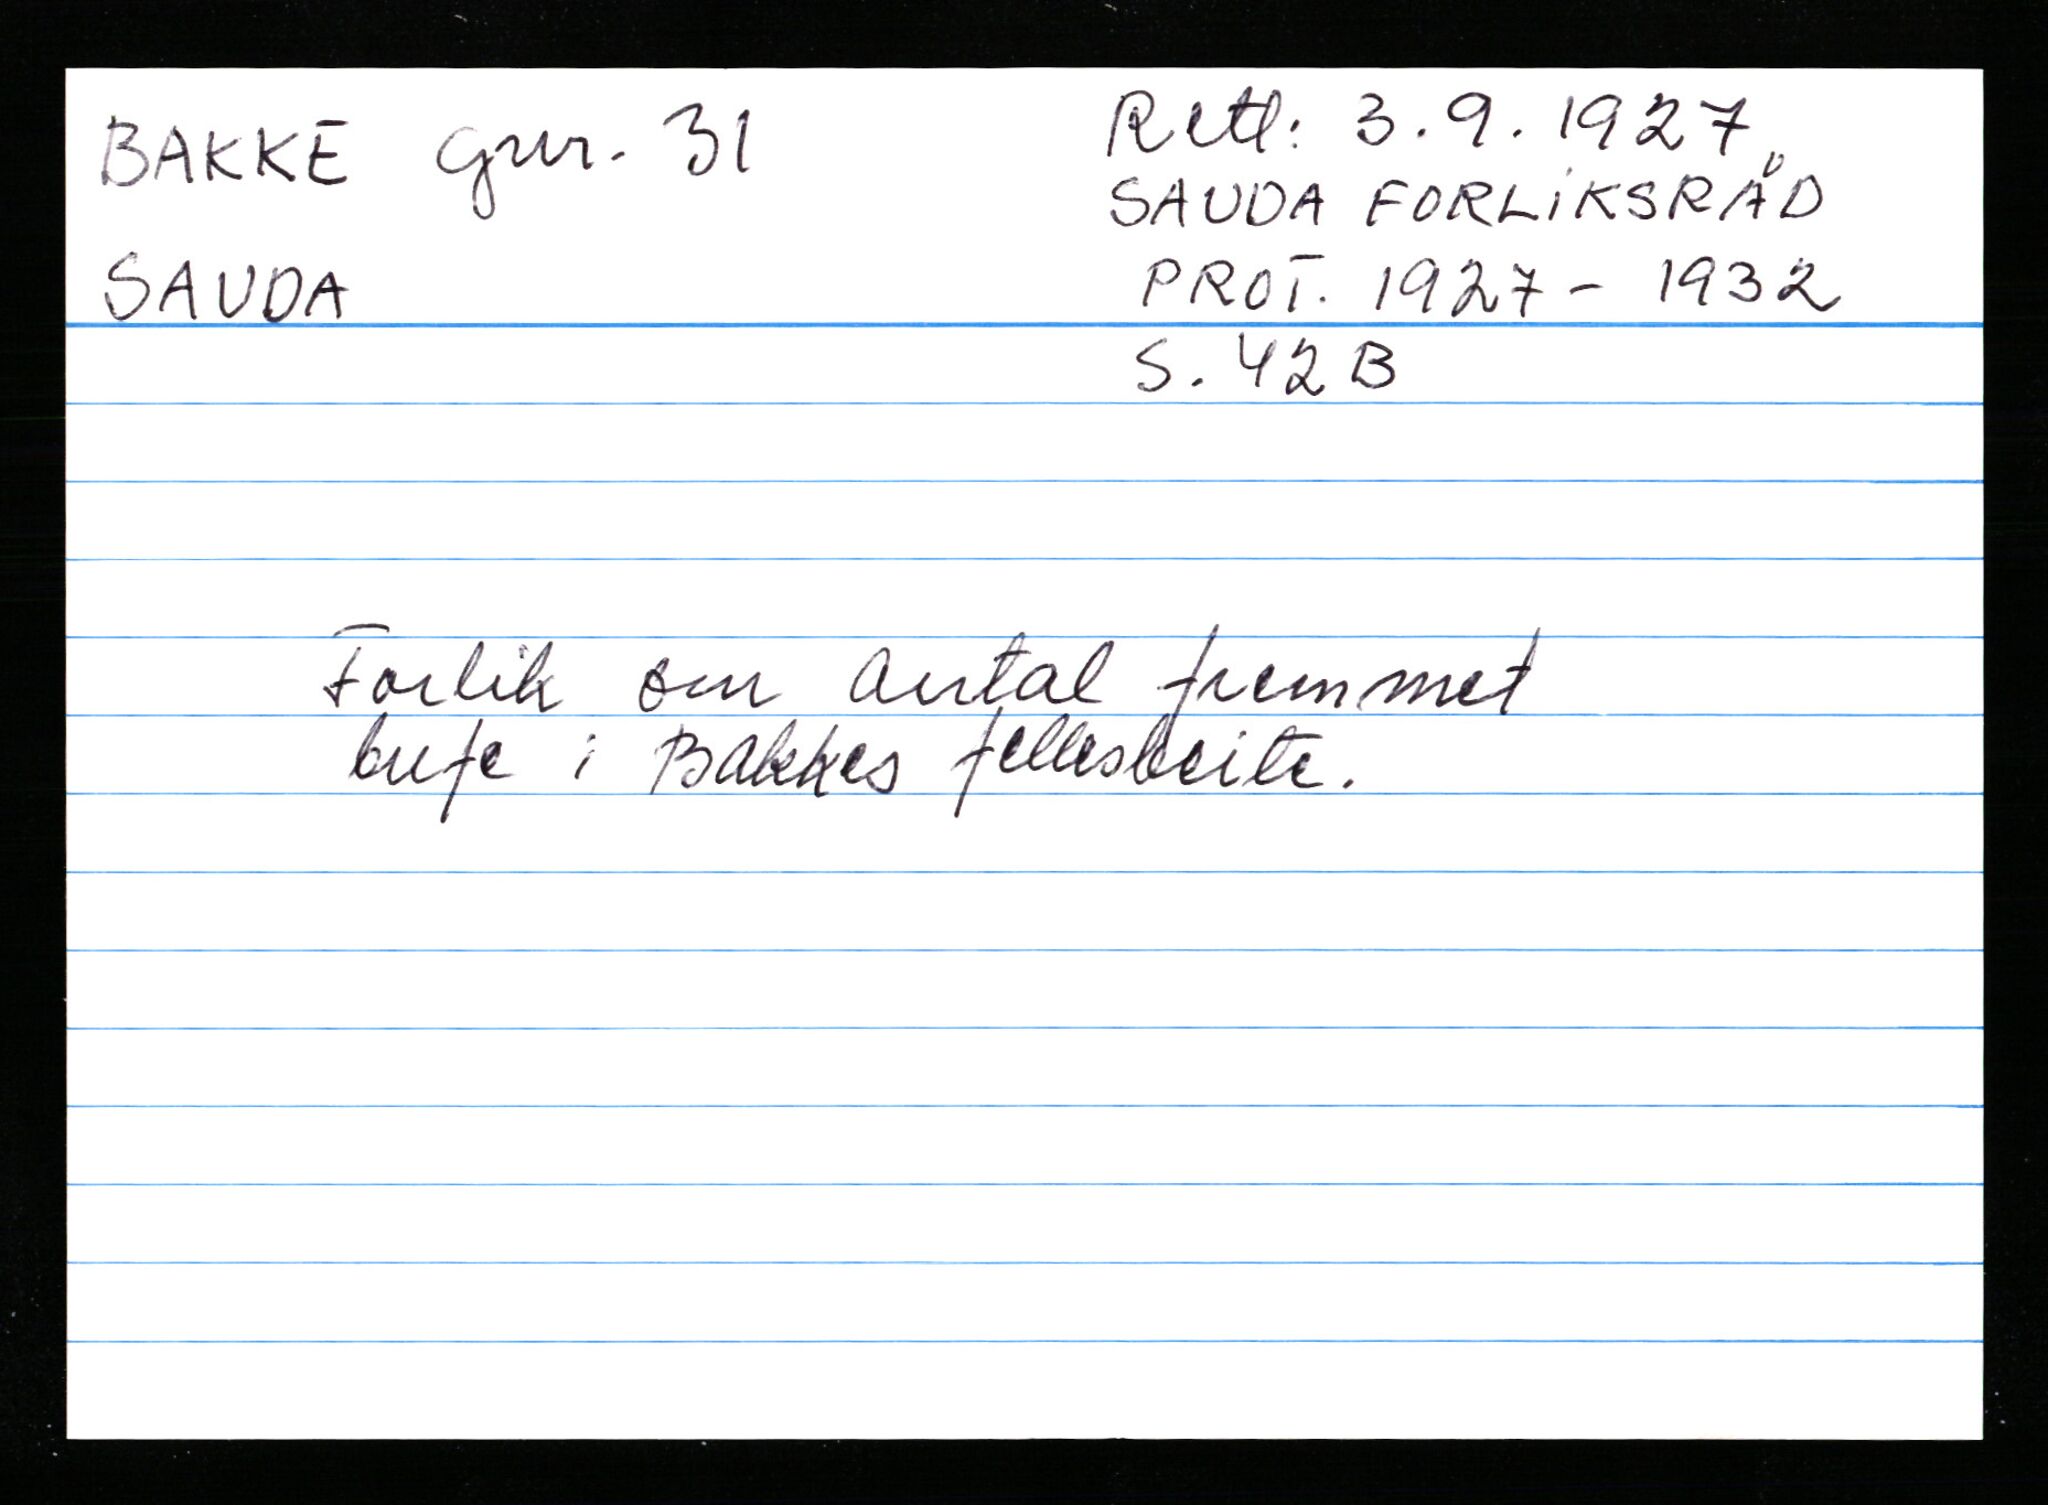 BAKKE gnr. 31
SAUDA
Rettl: 3.9.1927
SAUDA FORLIKSRÅD
PROT. 1927-1932
S. 42B
Forlik om antal fremmet
bufe i Bakkes fellesbeite.